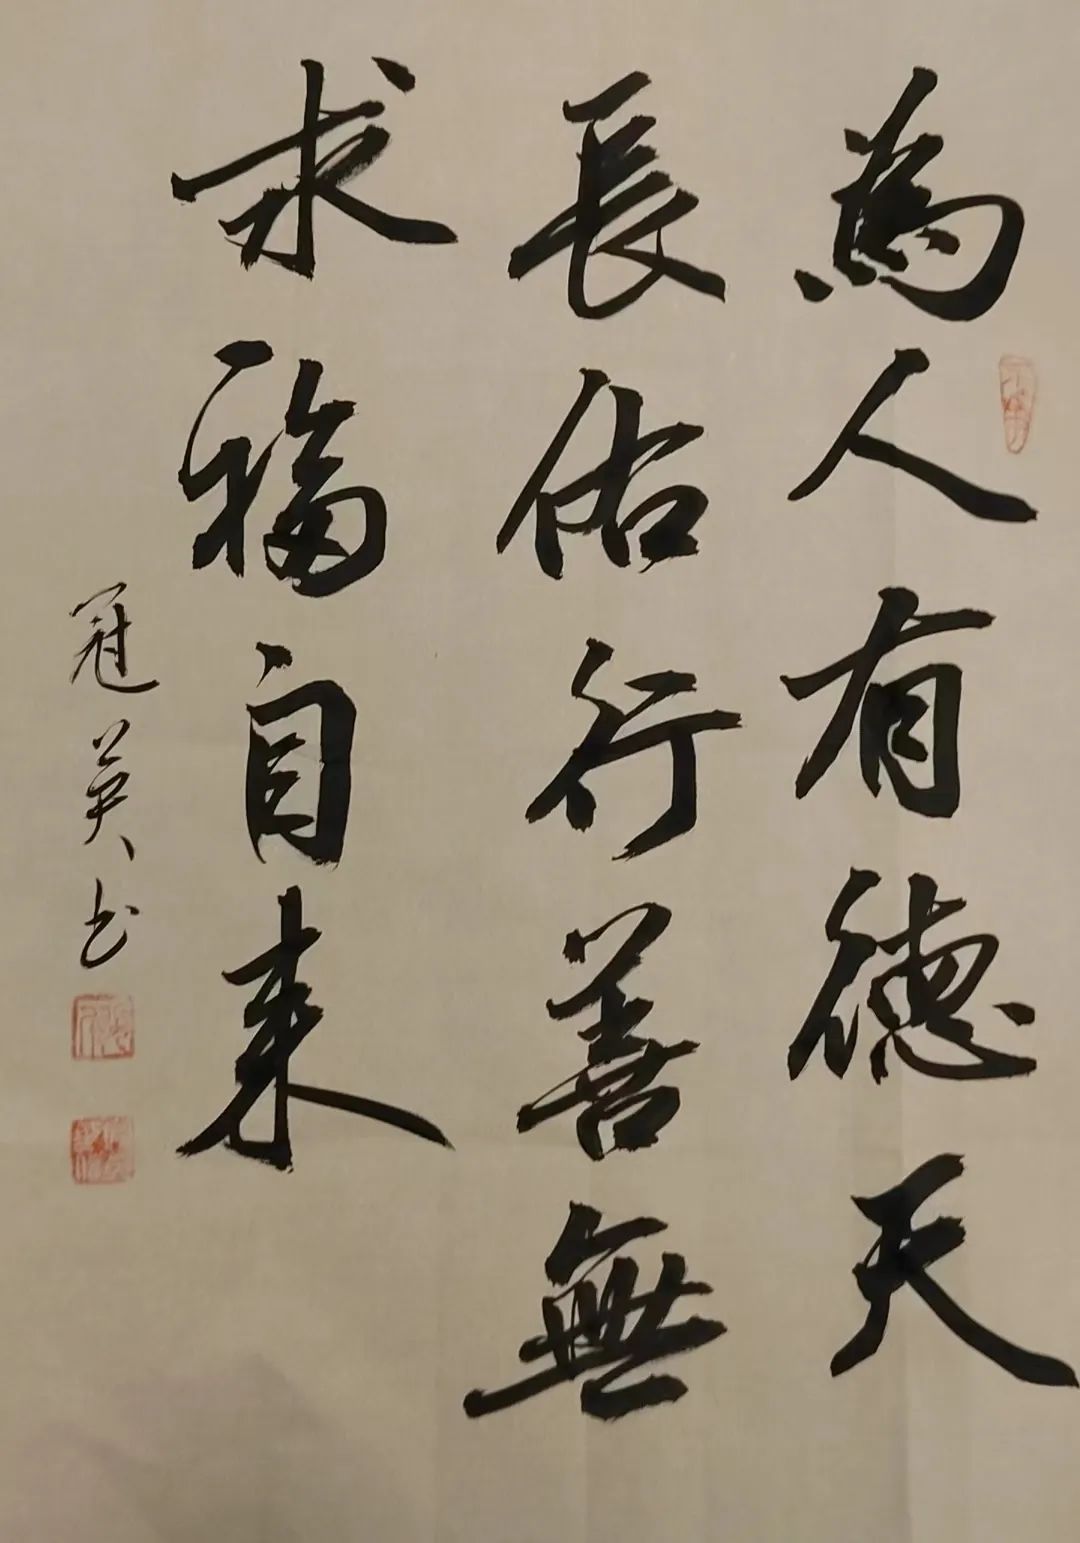 為人有德天
長佑行善無
求福自来
冠英书